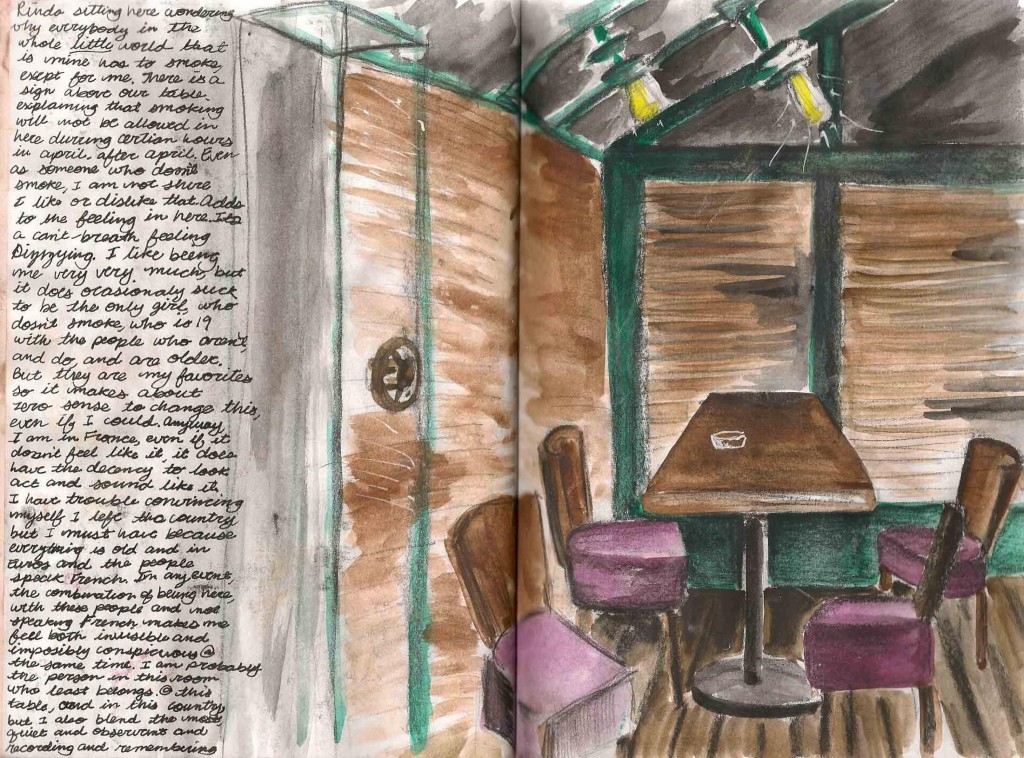 Kinda sitting here wondering
why everybody in the
whole little world that
is mine has to smoke,
exept for me. There is a
sign above our table
explaining that smoking
will not be allowed in
here durring certian hours
in april. after april. Even
as someone who dosnt
smoke, I am not shure
I like or dislike that. Adds
to the feeling in here. Its
a can't breath feeling
Dizzying. I like being
me very very much, but
it does ocasionaly suck
to be the only girl, who
dosn't smoke, who is 19
with the people who arent,
and do, and are older.
But they are my favorites
so it makes about
zero sense to change this,
even if I could. Anyway,
I am in France, even if it
dosn't feel like it, it does
have the decency to look
act and sound like it.
I have trouble convincing
myself I left the country
but I must have because
everything is old and in
euros and the people
speak French. In any event,
the combination of being here,
with these people and not
speaking French makes me
feel both invisible and
imposibly conspicuous @
the same time. I am probably
the person in this room
who least belongs @ this
table, and in this country
but I also blend the most,
quiet and observant and
recording and remembering